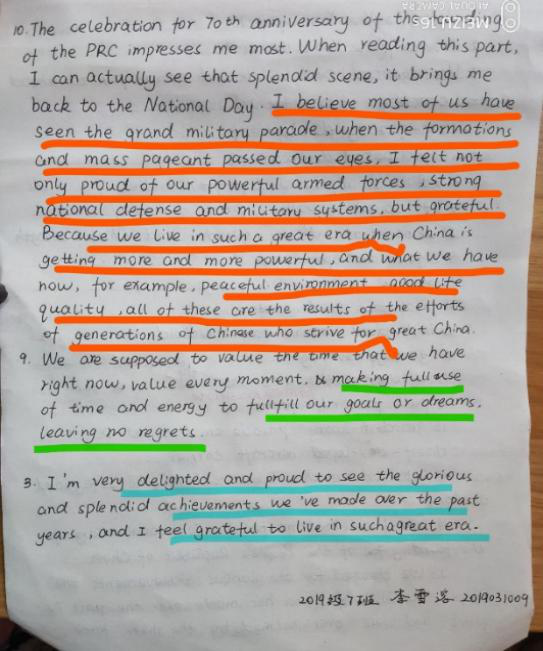 10. The celebration for 70th anniversary of the
of the PRC impresses me most. When reading this part,
I can actually see that splendid scene, it brings me
back to the National Day. I believe most of us have
seen the grand military parade, when the formations
and mass pageant passed our eyes, I felt not
only proud of our powerful armed forces, strong
national defense and military systems, but grateful.
Because we live in such a great era when China is
getting more and more powerful, and what we have
now, for example, peaceful environment good life
quality, all of these are the results of the efforts
of generations of Chinese who strive for great China.
9. We are supposed to value the time that we have
right now, value every moment. & making full use
of time and energy to fullfill our goals or dreams,
leaving no regrets.
3. I'm very delighted and proud to see the glorious
and splendid achievements we've made over the past
years, and I feel grateful to live in such a great era.
2019级7班 李雪 2019031009